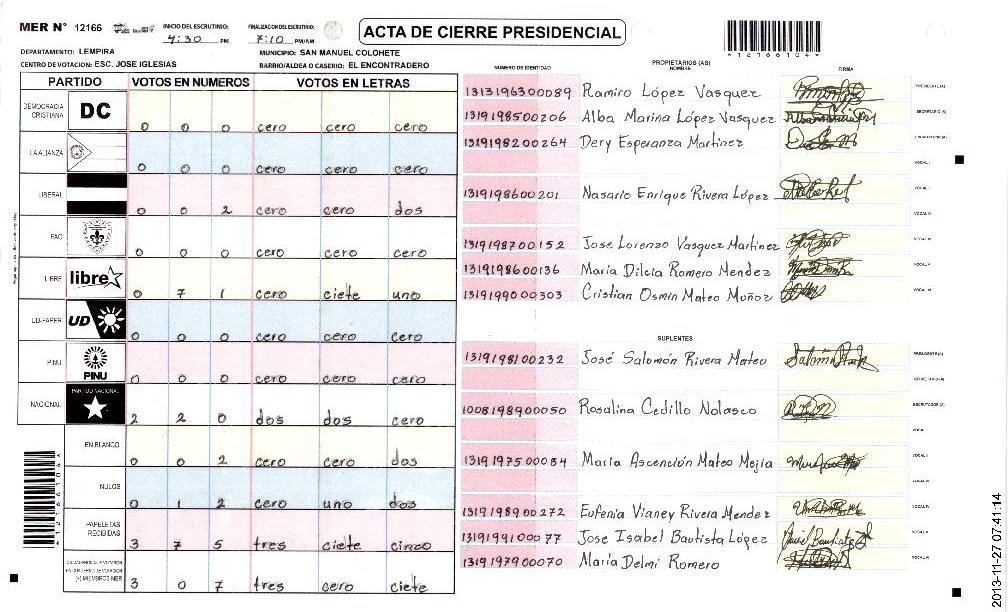 MER N° 12166 INICIO DEL ESCRUTINIO: 4:30 PM FINALIZACION DEL ESCRUTINIO: 7:10 PM/AM
ACTA DE CIERRE PRESIDENCIAL
*12166104*
DEPARTAMENTO: LEMPIRA MUNICIPIO: SAN MANUEL COLOHETE
CENTRO DE VOTACION: ESC. JOSE IGLESIAS BARRIO/ALDEA O CASERIO: EL ENCONTRADERO
PARTIDO VOTOS EN NUMEROS VOTOS EN LETRAS
DEMOCRACIA CRISTIANA DC 0 0 0 cero cero cero
LA ALIANZA 0 0 0 cero cero cero
LIBERAL 0 0 2 cero cero dos
PAC 0 0 0 cero cero cero
LIBRE libre 0 7 1 cero ciete uno
UD-FAPER UD 0 0 0 cero cero cero
PINU PINU 0 0 0 cero cero cero
NACIONAL PARTIDO NACIONAL 2 2 0 dos dos cero
EN BLANCO 0 0 2 cero cero dos
NULOS 0 1 2 cero uno dos
PAPELETAS RECIBIDAS 3 7 5 tres ciete cinco
(+) MIEMBROS MER 3 0 7 tres cero ciete
NUMERO DE IDENTIDAD PROPIETARIOS (AS) NOMBRE FIRMA
1313196300089 Ramiro López Vasquez PRESIDENTE(A)
1319198500206 Alba Marina López Vasquez SECRETARIO (A)
1319198200264 Dery Esperanza Martinez ESCRUTADOR (A)
VOCAL I
1319198600201 Nasario Enrique Rivera López VOCAL II
VOCAL III
1319198700152 Jose Lorenzo Vasquez Martinez VOCAL IV
1319198600136 Maria Dilcia Romero Mendez VOCAL V
1319199000303 Cristian Osmin Mateo Muñoz VOCAL VI
SUPLENTES
1319198100232 José Salomón Rivera Mateo PRESIDENTE (A)
SECRETARIO (A)
1008198900050 Rosalina Cedillo Nolasco ESCRUTADOR (A)
VOCAL I
1319197500084 Maria Ascención Mateo Mejía VOCAL II
VOCAL III
1319198900272 Eufenia Vianey Rivera Mendez VOCAL IV
1319199100077 Jose Isabel Bautista López VOCAL V
1319197900070 María Delmi Romero VOCAL VI
*12166104*
2013-11-27 07:41:14